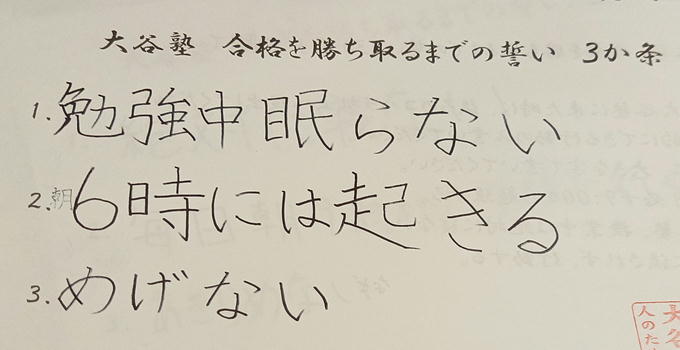 大谷塾　合格を勝ち取るまでの誓い　3か条
1. 勉強中眠らない
2. 朝6時には起きる
3. めげない